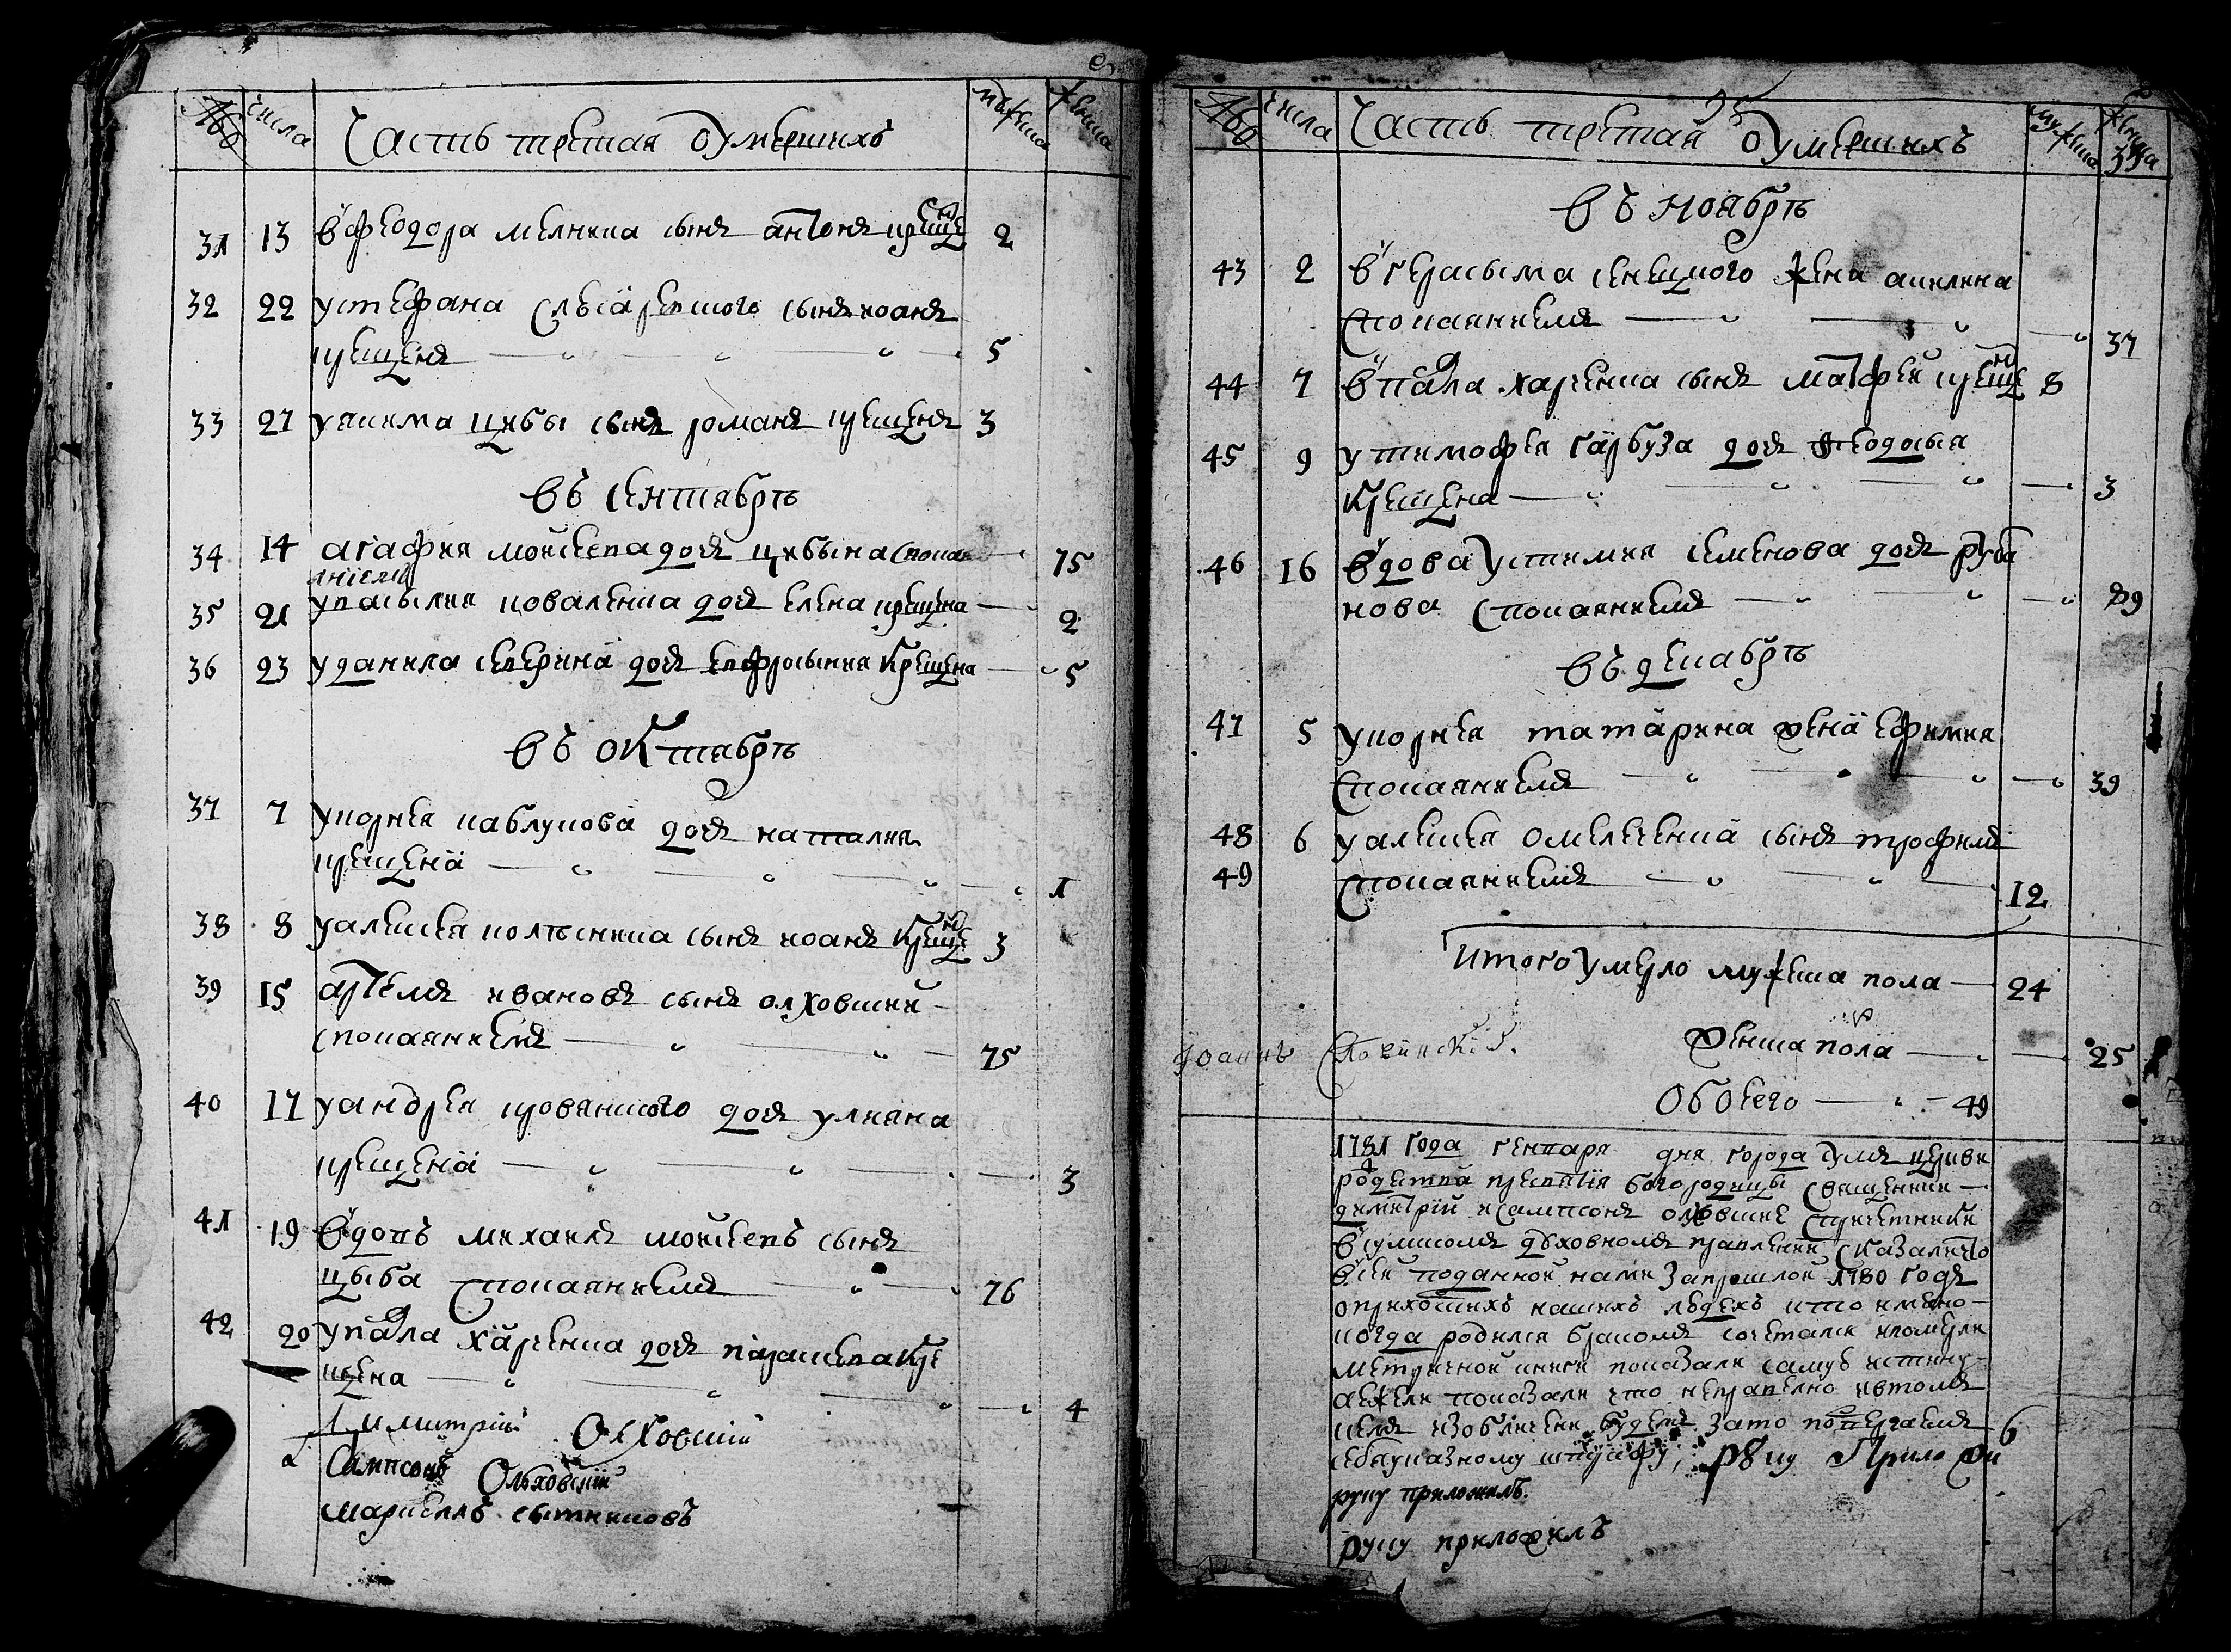 № числа Часть третая о умершихъ мужеска женска
31 13 в феодора мелника сынъ антонъ креще 2
32 22 у стефана сынъ иоанъ
крещенъ 5
33 27 у якима цибы сынъ романъ крещенъ 3
въ сентябрѣ
34 14 агафия моисеева дочъ цибына спокая 75
ниемъ
35 21 у василия коваленка дочъ елена крещена 2
36 23 у данила северина дочъ евфросыния крещена 5
въ октябрѣ
37 7 у корнея кавлукова дочъ наталия
крещена 1
38 8 у алексея колѣсника сынъ иоанъ креще 3
39 15 артемъ ивановъ сынъ олховский
спокаяниемъ 75
40 17 у андрея кровянского дочъ улияна
крещена 3
41 19 вдовъ михаилъ моисеевъ сынъ
цыба спокаяниемъ 76
42 20 у павла харченка дочъ параскева кре
щена 4
Димитрій Олховскій
Сампсонъ Ольховскій
маркеллъ сытниковъ
№ числа Часть третая о умершихъ мужеска женска
въ ноябрѣ
43 2 в герасыма сенецкого жена акилина
спокаяниемъ 37
44 7 в павла харченка сынъ матфей креще 8
45 9 у тимофея гарбуза дочъ феодосыя
крещена 3
46 16 вдова устимия семенова дочъ руба
нова спокаяниемъ 29
въ декабрѣ
47 5 у корнея татарина жена ефимия
спокаяниемъ 39
48 6 у алексея омелченка сынъ трофимъ
49 спокаяниемъ 12
Итого умерло мужеска пола 24
Женска пола 25
Іоаннъ
Обоего 49
1781 года генваря дня города сумъ церкви
рождества пресвятія богородицы священники
димитрій и сампсонъ олховские спричетники
в сумскомъ духовномъ правлении сказали что
в сей поданной нами запрошлой 1780 годъ
о прихоцкихъ нашихъ людехъ кто имено
когда родился бракомъ сочетался и померли
метричной книги показали самую истину
а ежели показали что неправелно и втомъ
кемъ изобличени будемъ зато повергаемъ
себя указному штрафу, руку приложи
руку приложилъ.
руку приложилъ